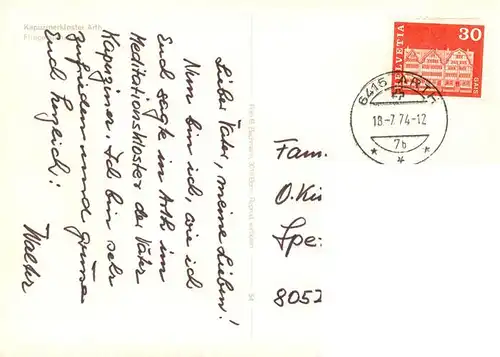 Kapuzinerkloster Arth
Lieber Vater, meine Lieben!
Nun bin ich, wie ich
Euch sagte in Arth im
Meditationskloster der Väter
Kapuziner. Ich bin sehr
zufrieden und grüsse
Euch herzlich!
Walter
HELVETIA
30
GAIS
6415 ARTH
18-7 74-12
7b
Fam.
O. Kü
Spe
8052